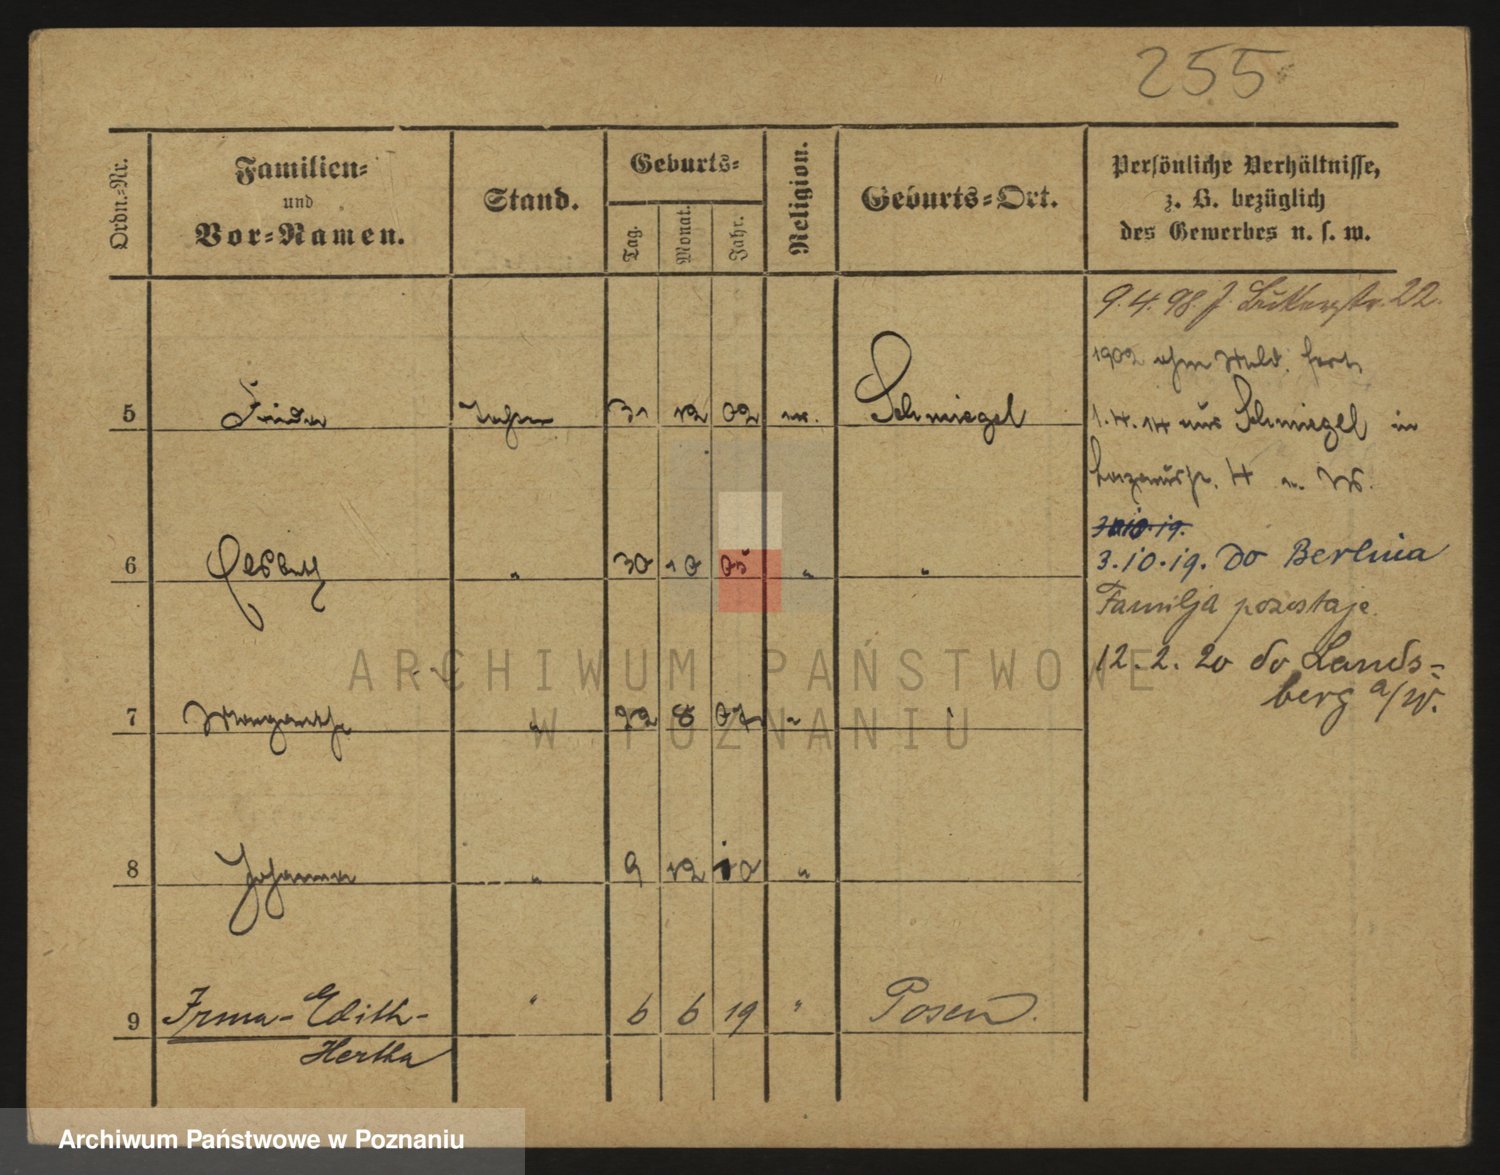 255
Ordn.-Nr.
Familien-
und
Vor-Namen.
Stand.
Geburts-
Tag.
Monat.
Jahr.
Religion.
Geburts-Ort.
Persönliche Verhältnisse,
z. B. bezüglich
des Gewerbes u. s. w.
9. 4. 98. J. 22.
1902 ohne Meld. fort
5 Frida Tochter 31 12 02 ev. Schmiegel
1. 4. 14 aus Schmiegel in
4
6 Elsbeth " 30 10 05 " "
3.10.19.
3.10.19. do Berlina
Familja pozostaje.
12. 2. 20 do Lands-
berg a/W.
7 Margarethe " 22 8 07 " "
8 Johanna " 9 12 10 "
9 Irma - Edith - " 6 6 19 " Posen.
Hertha
ARCHIWUM PAŃSTWOWE
W POZNANIU
Archiwum Państwowe w Poznaniu